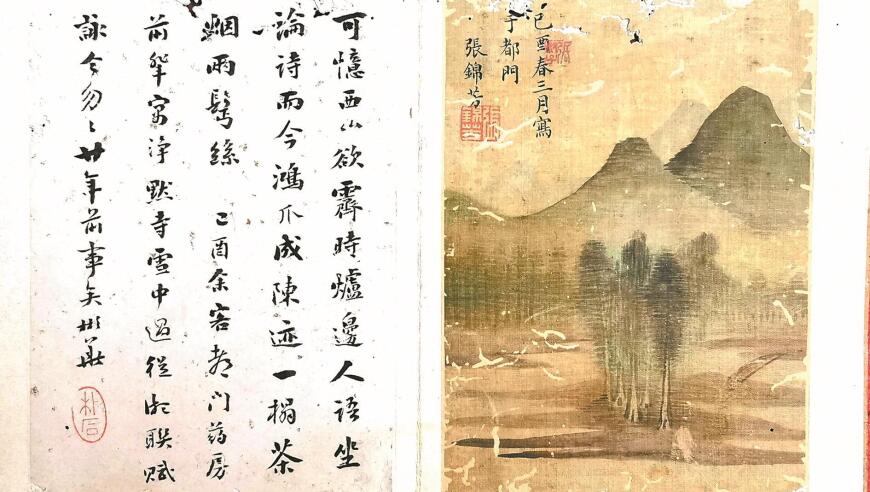 己酉春三月寫
于都門
張錦芳
可憶西山欲霽時爐邊人語坐
論詩而今鴻爪成陳迹一榻茶
烟兩鬂絲 己酉余客都門葯房
前輩寓淨默寺雪中過從聯賦
詠今勿勿廿年前事矣彬華
朴石